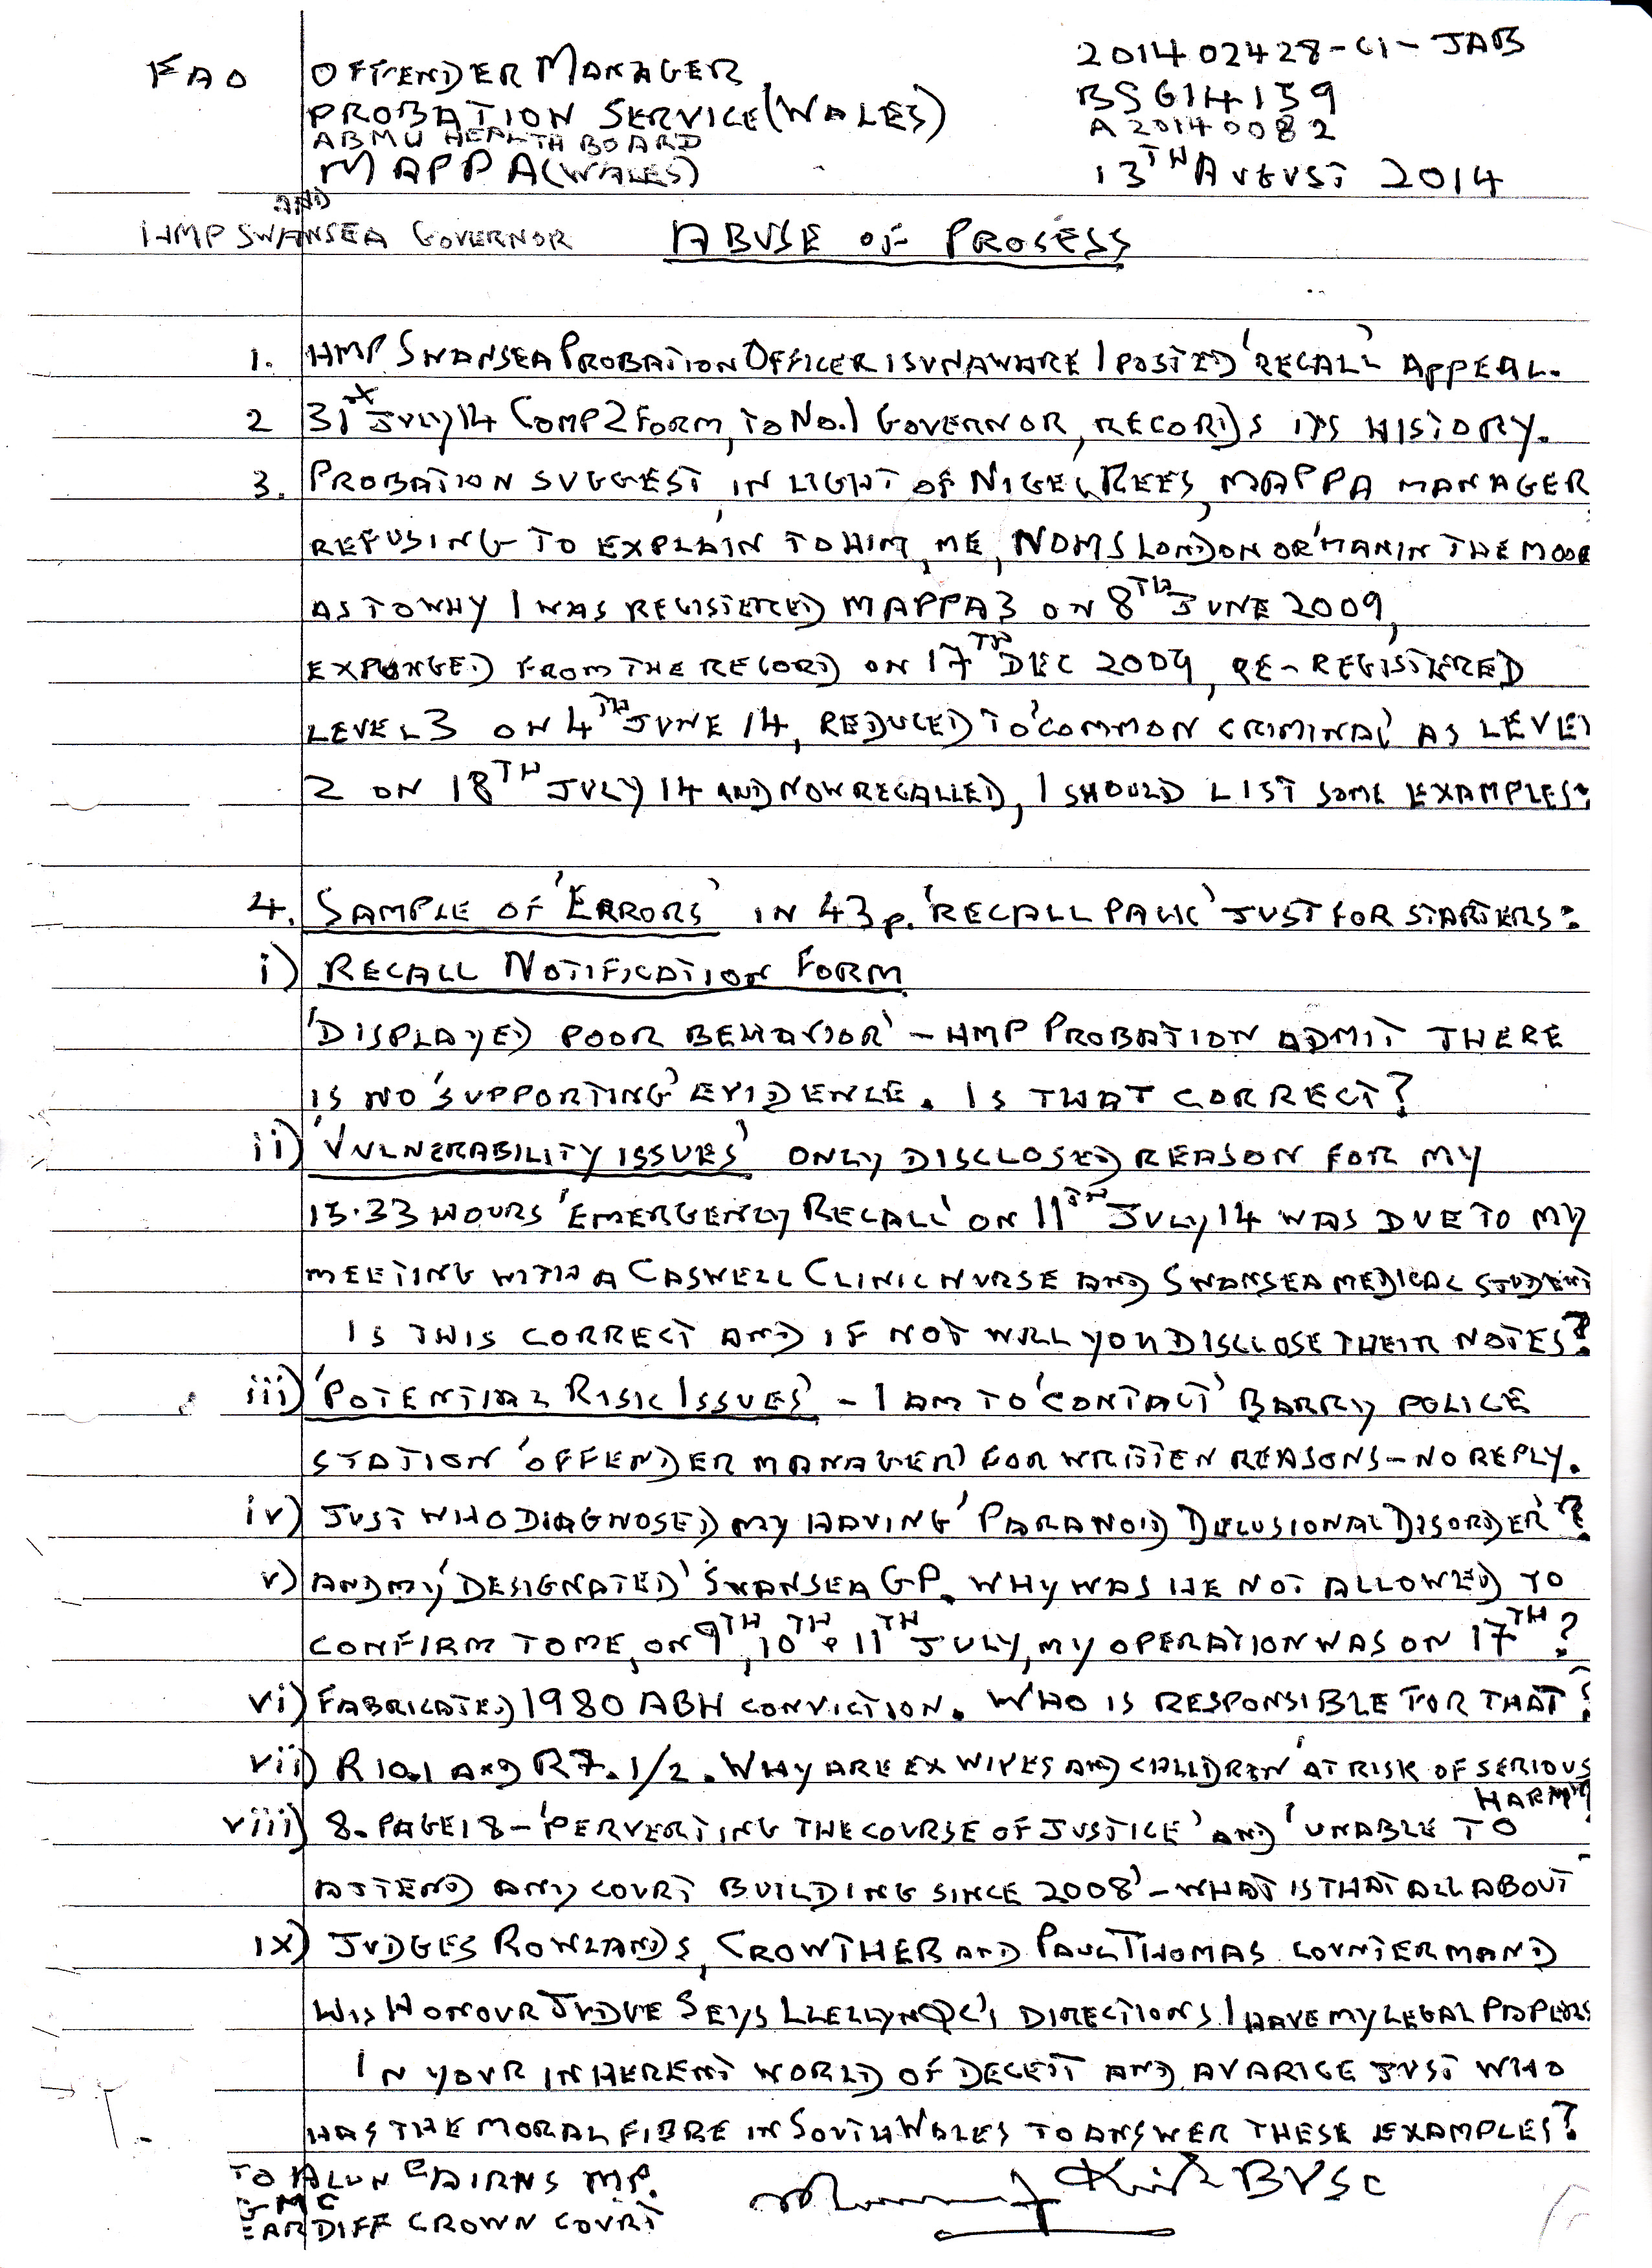 FAO OFFENDER MANAGER
PROBATION SERVICE (WALES)
ABMU HEALTH BOARD
MAPPA (WALES)
AND
HMP SWANSEA GOVERNOR
201402428-C1-JAB
BS614159
A 20140082
13TH AUGUST 2014
ABUSE OF PROSESS
1. HMP SWANSEA PROBATION OFFICER IS UNAWARE I POSTED 'RECALL' APPEAL.
2 31st JULY 14 COMP 2 FORM, TO NO.1 GOVERNOR, RECORDS ITS HISTORY.
3. PROBATION SUGGEST, IN LIGHT OF NIGEL REES, MAPPA MANAGER
REFUSING TO EXPLAIN TO HIM, ME, NOMS LONDON OR 'MAN IN THE MOON
AS TO WHY I WAS REGISTERED MAPPA 3 ON 8TH JUNE 2009,
EXPUNGED FROM THE RECORD ON 17TH DEC 2009, RE-REGISTERED
LEVEL 3 ON 4TH JUNE 14, REDUCED TO 'COMMON CRIMINAL' AS LEVEL
2 ON 18TH JULY 14 AND NOW RECALLED, I SHOULD LIST SOME EXAMPLES:
4. SAMPLE OF 'ERRORS' IN 43p. 'RECALL PACK' JUST FOR STARTERS:
i) RECALL NOTIFICATION FORM
'DISPLAYED POOR BEHAVIOR' - HMP PROBATION ADMIT THERE
IS NO 'SUPPORTING' EVIDENCE. IS THAT CORRECT?
ii) 'VULNERABILITY ISSUES' ONLY DISCLOSED REASON FOR MY
15.33 HOURS 'EMERGENCY RECALL' ON 11TH JULY 14 WAS DUE TO MY
MEETING WITH A CASWELL CLINIC NURSE AND SWANSEA MEDICAL STUDENT
IS THIS CORRECT AND IF NOT WILL YOU DISCLOSE THEIR NOTES?
iii) 'POTENTIAL RISK ISSUES' - I AM TO 'CONTACT' BARRY POLICE
STATION 'OFFENDER MANAGER' FOR WRITTEN REASONS - NO REPLY.
iv) JUST WHO DIAGNOSED MY HAVING 'PARANOID DELUSIONAL DISORDER'?
v) AND MY 'DESIGNATED' SWANSEA GP. WHY WAS HE NOT ALLOWED TO
CONFIRM TO ME, ON 9TH, 10TH & 11TH JULY, MY OPERATION WAS ON 17TH?
vi) FABRICATED 1980 ABH CONVICTION. WHO IS RESPONSIBLE FOR THAT?
vii) R10.1 AND R7.1/2. WHY ARE EX WIVES AND CHILDREN 'AT RISK OF SERIOUS
HARM'?
viii) 8. PAGE 18 - 'PERVERTING THE COURSE OF JUSTICE' AND 'UNABLE TO
ATTEND ANY COURT BUILDING SINCE 2008' - WHAT IS THAT ALL ABOUT
ix) JUDGES ROWLANDS, CROWTHER AND PAUL THOMAS COUNTERMAND
HIS HONOUR JUDGE SEYS LLELLYN QC'S DIRECTIONS I HAVE MY LEGAL PAPERS
IN YOUR INHERENT WORLD OF DECEIT AND AVARICE JUST WHO
HAS THE MORAL FIBRE IN SOUTH WALES TO ANSWER THESE EXAMPLES?
TO ALUN CAIRNS MP.
GMC
CARDIFF CROWN COURT
Kirk BVSC